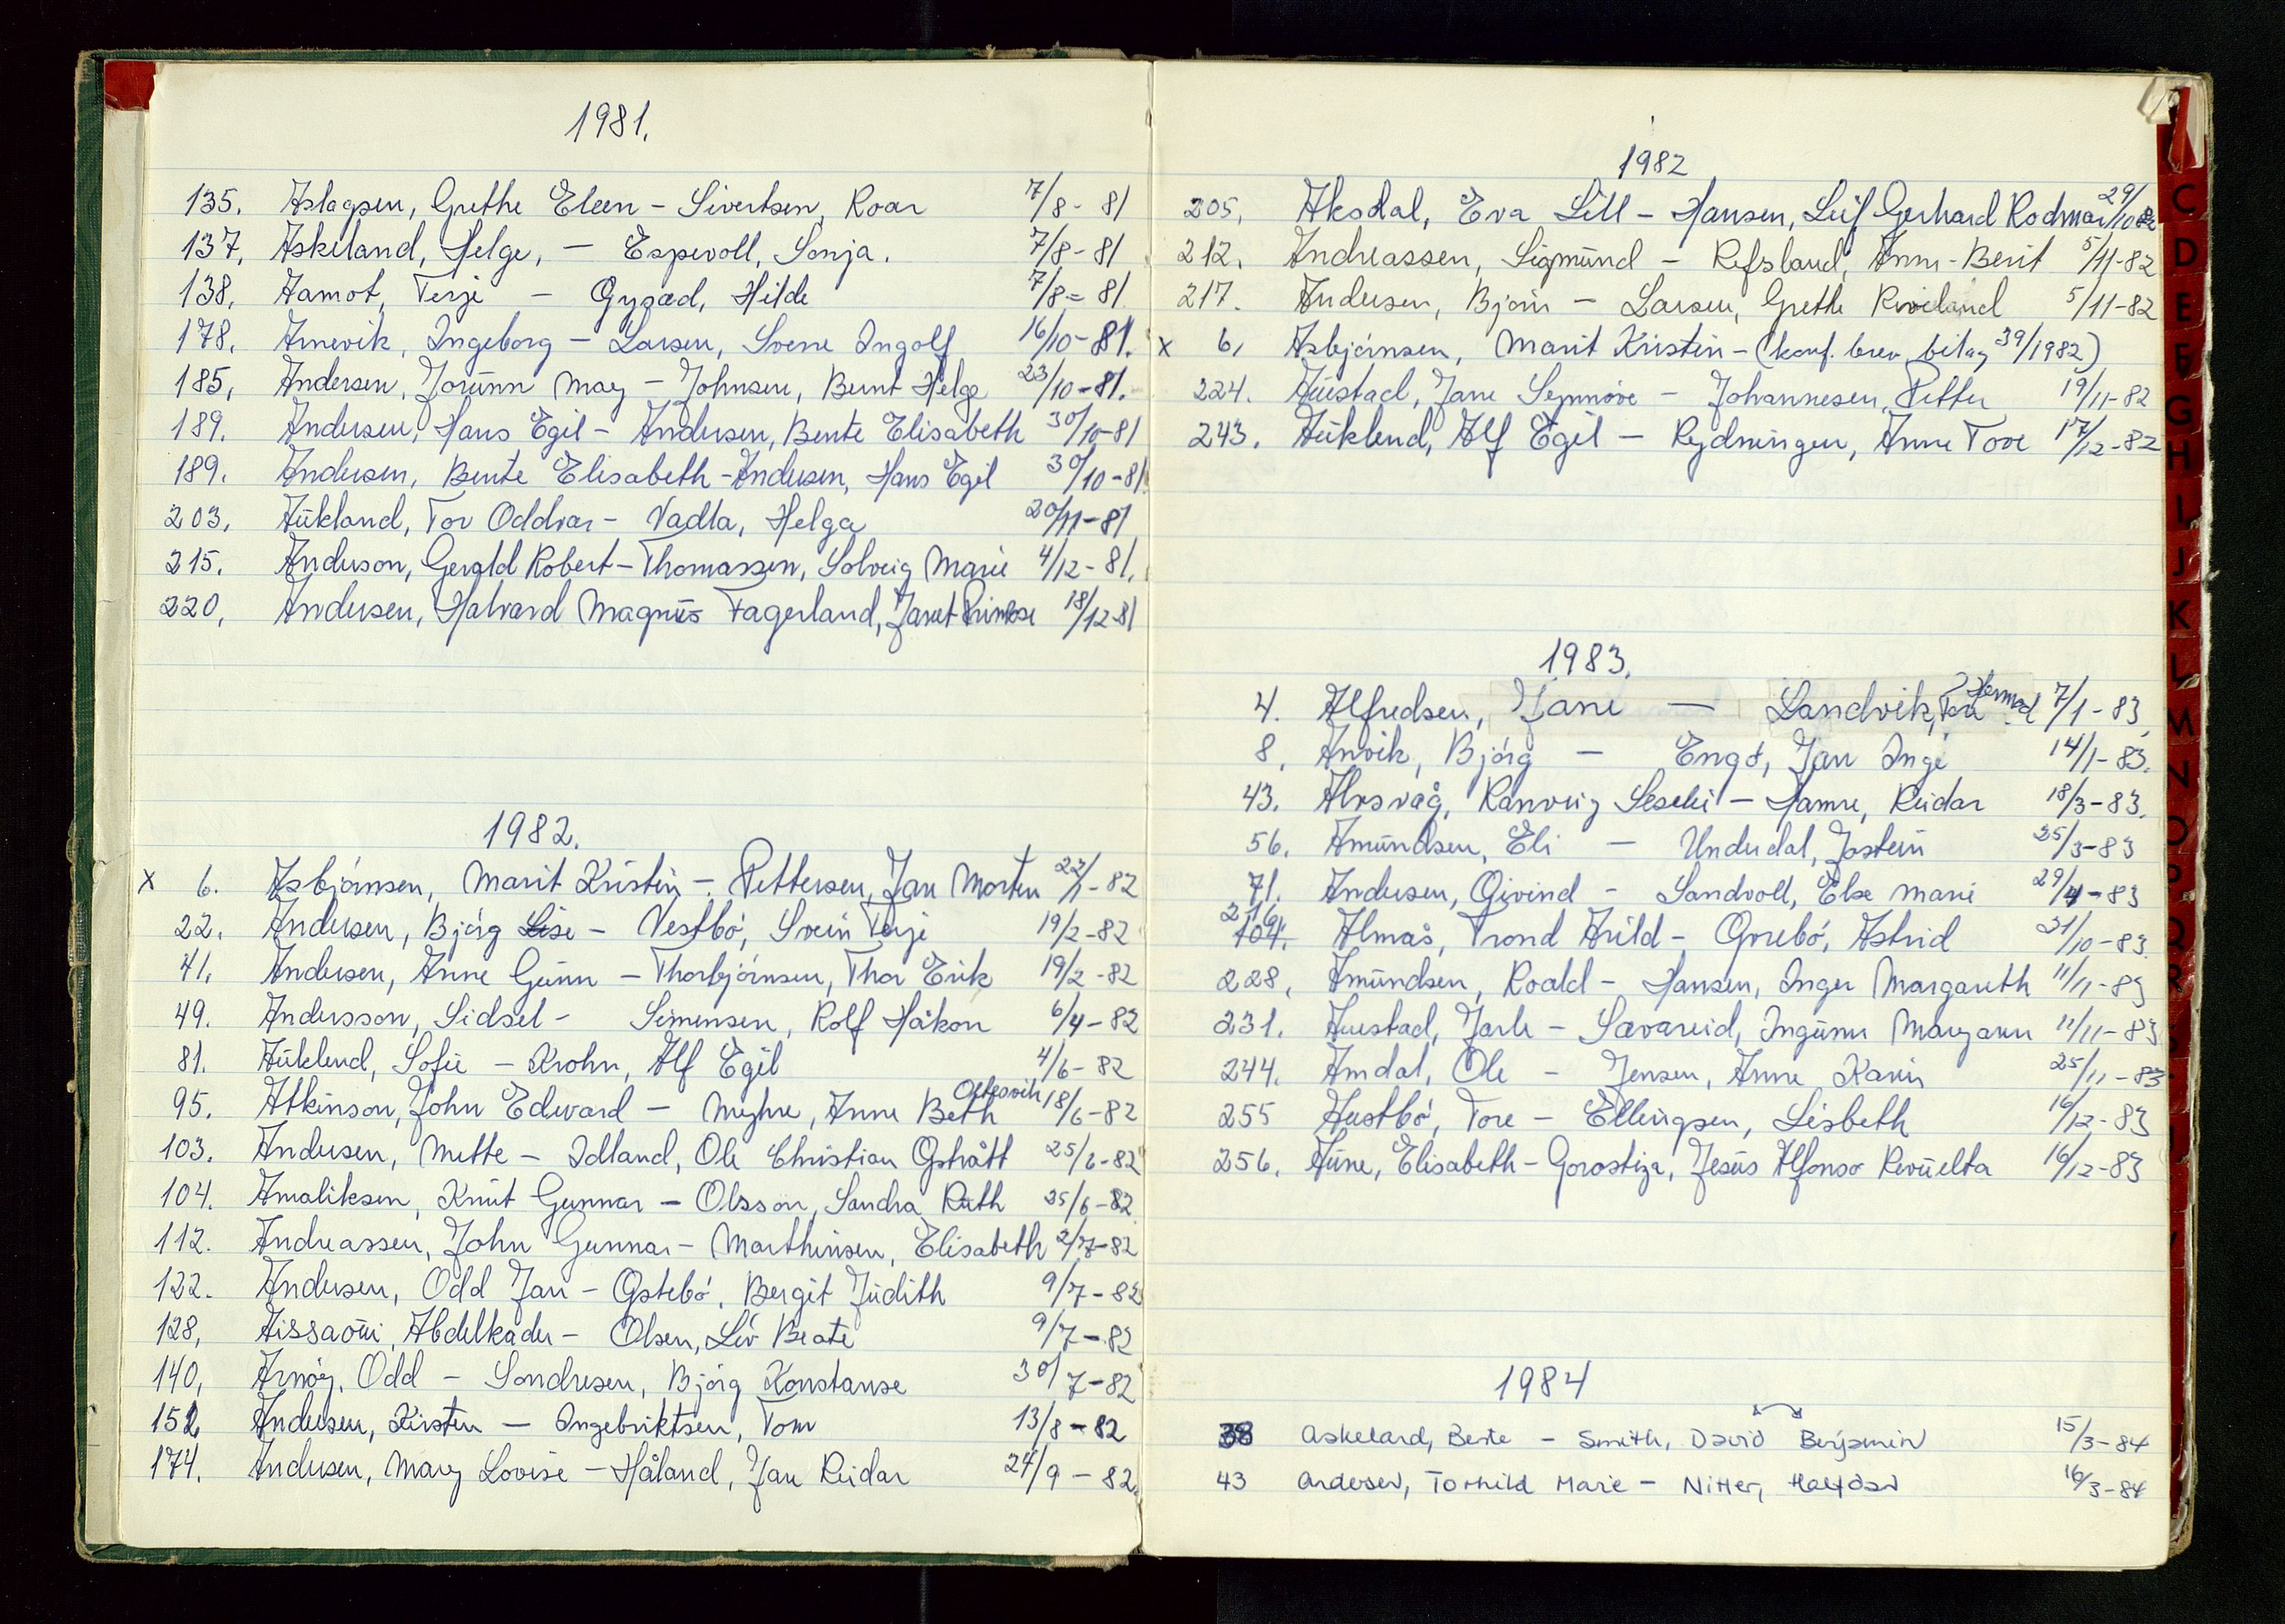 1981.
135. Aslagsen, Grethe Eleen - Sivertsen, Roar 7/8 - 81
137. Askeland, Helge, - Espevoll, Sonja. 7/8 - 81
138. Aamot, Terje - Gyzæd, Hilde 7/8 = 81
178. Arnevik, Ingeborg - Larsen, Svene Ingolf 16/10 - 81.
185. Andersen, Jorunn May - Johnsen, Bernt Helge 23/10 - 81.
189. Andersen, Hans Egil - Andersen, Bente Elisabeth 30/10 - 81
189. Andersen, Bente Elisabeth - Andersen, Hans Egil 30/10 - 81
203. Aukland, Tor Oddvar - Vadla, Helga 20/11 - 81
215. Anderson, Gerald Robert - Thomassen, Solveig Marie 4/12 - 81.
220. Andersen, Halvard Magnus Fagerland, Janet Primrose 18/12 81
1982.
x 6. Asbjörnsen, Marit Kristin - Pettersen, Jan Morten 22/1 - 82
22. Andersen, Björg Lise - Vestbö, Svein Terje 19/2 - 82
41. Andersen, Anne Gunn - Thorbjörnsen, Thor Erik 19/2 - 82
49. Andersson, Sidsel - Simensen, Rolf Håkon 6/4 - 82
81. Auklend, Sofie - Krohn, Alf Egil 4/6 - 82
95. Atkinson, John Edward - Myhre, Anne Beth Oltesvik 18/6 - 82
103. Andersen, Mette - Idland, Ole Christian Østrått 25/6 - 82
104. Amaliksen, Knut Gunnar - Olsson, Sandra Ruth 25/6 - 82
112. Andreassen, John Gunnar - Marthinsen, Elisabeth 2/7 - 82
122. Andersen, Odd Jan - Østebö, Bergit Judith 9/7 - 82
128. Aissaoui, Abdelkader - Olsen, Liv Beate 9/7 - 82
140. Arnöy, Odd - Sondresen, Björg Konstanse 30/7 - 82
152 Andersen, Kirsten - Ingebriktsen, Tom 13/8 - 82
174. Andersen, Mary Lovise - Håland, Jan Reidar 24/9 - 82.
1982
205. Aksdal, Eva Lill - Hansen, Leif Gerhard Rodmar 29/10 82
212. Andreassen, Sigmund - Refsland, Ann-Berit 5/11 - 82
217. Andersen, Björn - Larsen, Grethe Roveland 5/11 - 82
x 6. Asbjörnsen, Marit Kristin - (konf. brev bilag 39/1982)
224. Austad, Jane Synnöve - Johannesen, Petter 19/11 - 82
243. Auklend, Alf Egil - Rydningen, Anne Tove 17/12 - 82
1983.
4. Alfredsen, Jane - Landvik, Tore Hermod 7/1 - 83
8. Anvik, Björg - Engö, Jan Inge 14/1 - 83.
43. Alvsvåg, Ranveig Seselei - Hamre, Reidar 18/3 - 83.
56. Amundsen, Eli - Underdal, Jostein 25/3 - 83
71. Andersen, Öivind - Sandvoll, Else Marie 29/4 - 83
216. 104. Almås, Trond Arild - Orrebö, Astrid 21/10 - 83.
228. Amundsen, Roald - Hansen, Inger Margareth 11/11 - 83
231. Austad, Jarle - Sævareid, Ingunn Maryann 11/11 - 83
244. Amdal, Ole - Jensen, Anne Karin 25/11 - 83
255 Austbö, Tore - Ellingsen, Lisbeth 16/12 - 83
256. Aune, Elisabeth - Gorostiza, Jesus Alfonso Revuelta 16/12 - 83
1984
38 Askeland, Bente - Smith, David Benjamin 15/3 - 84
43 Andersen, Torhild Marie - Nitter, Halfdan 16/3 - 84
C
D
E
F
G
H
I
J
K
L
M
N
O
P
Q
R
S